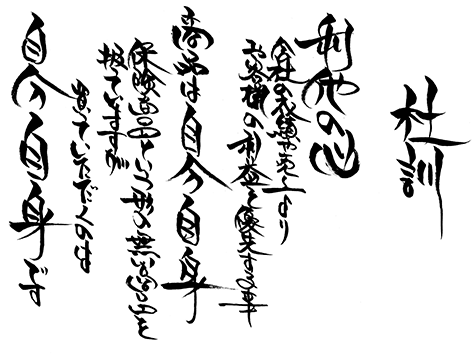 社訓
利他の心
会社の求益あくより
お客様の利益を優先する事
商品は自分自身
保険商品という形の無い商品を
扱っていますが
買っていただくのは
自分自身です